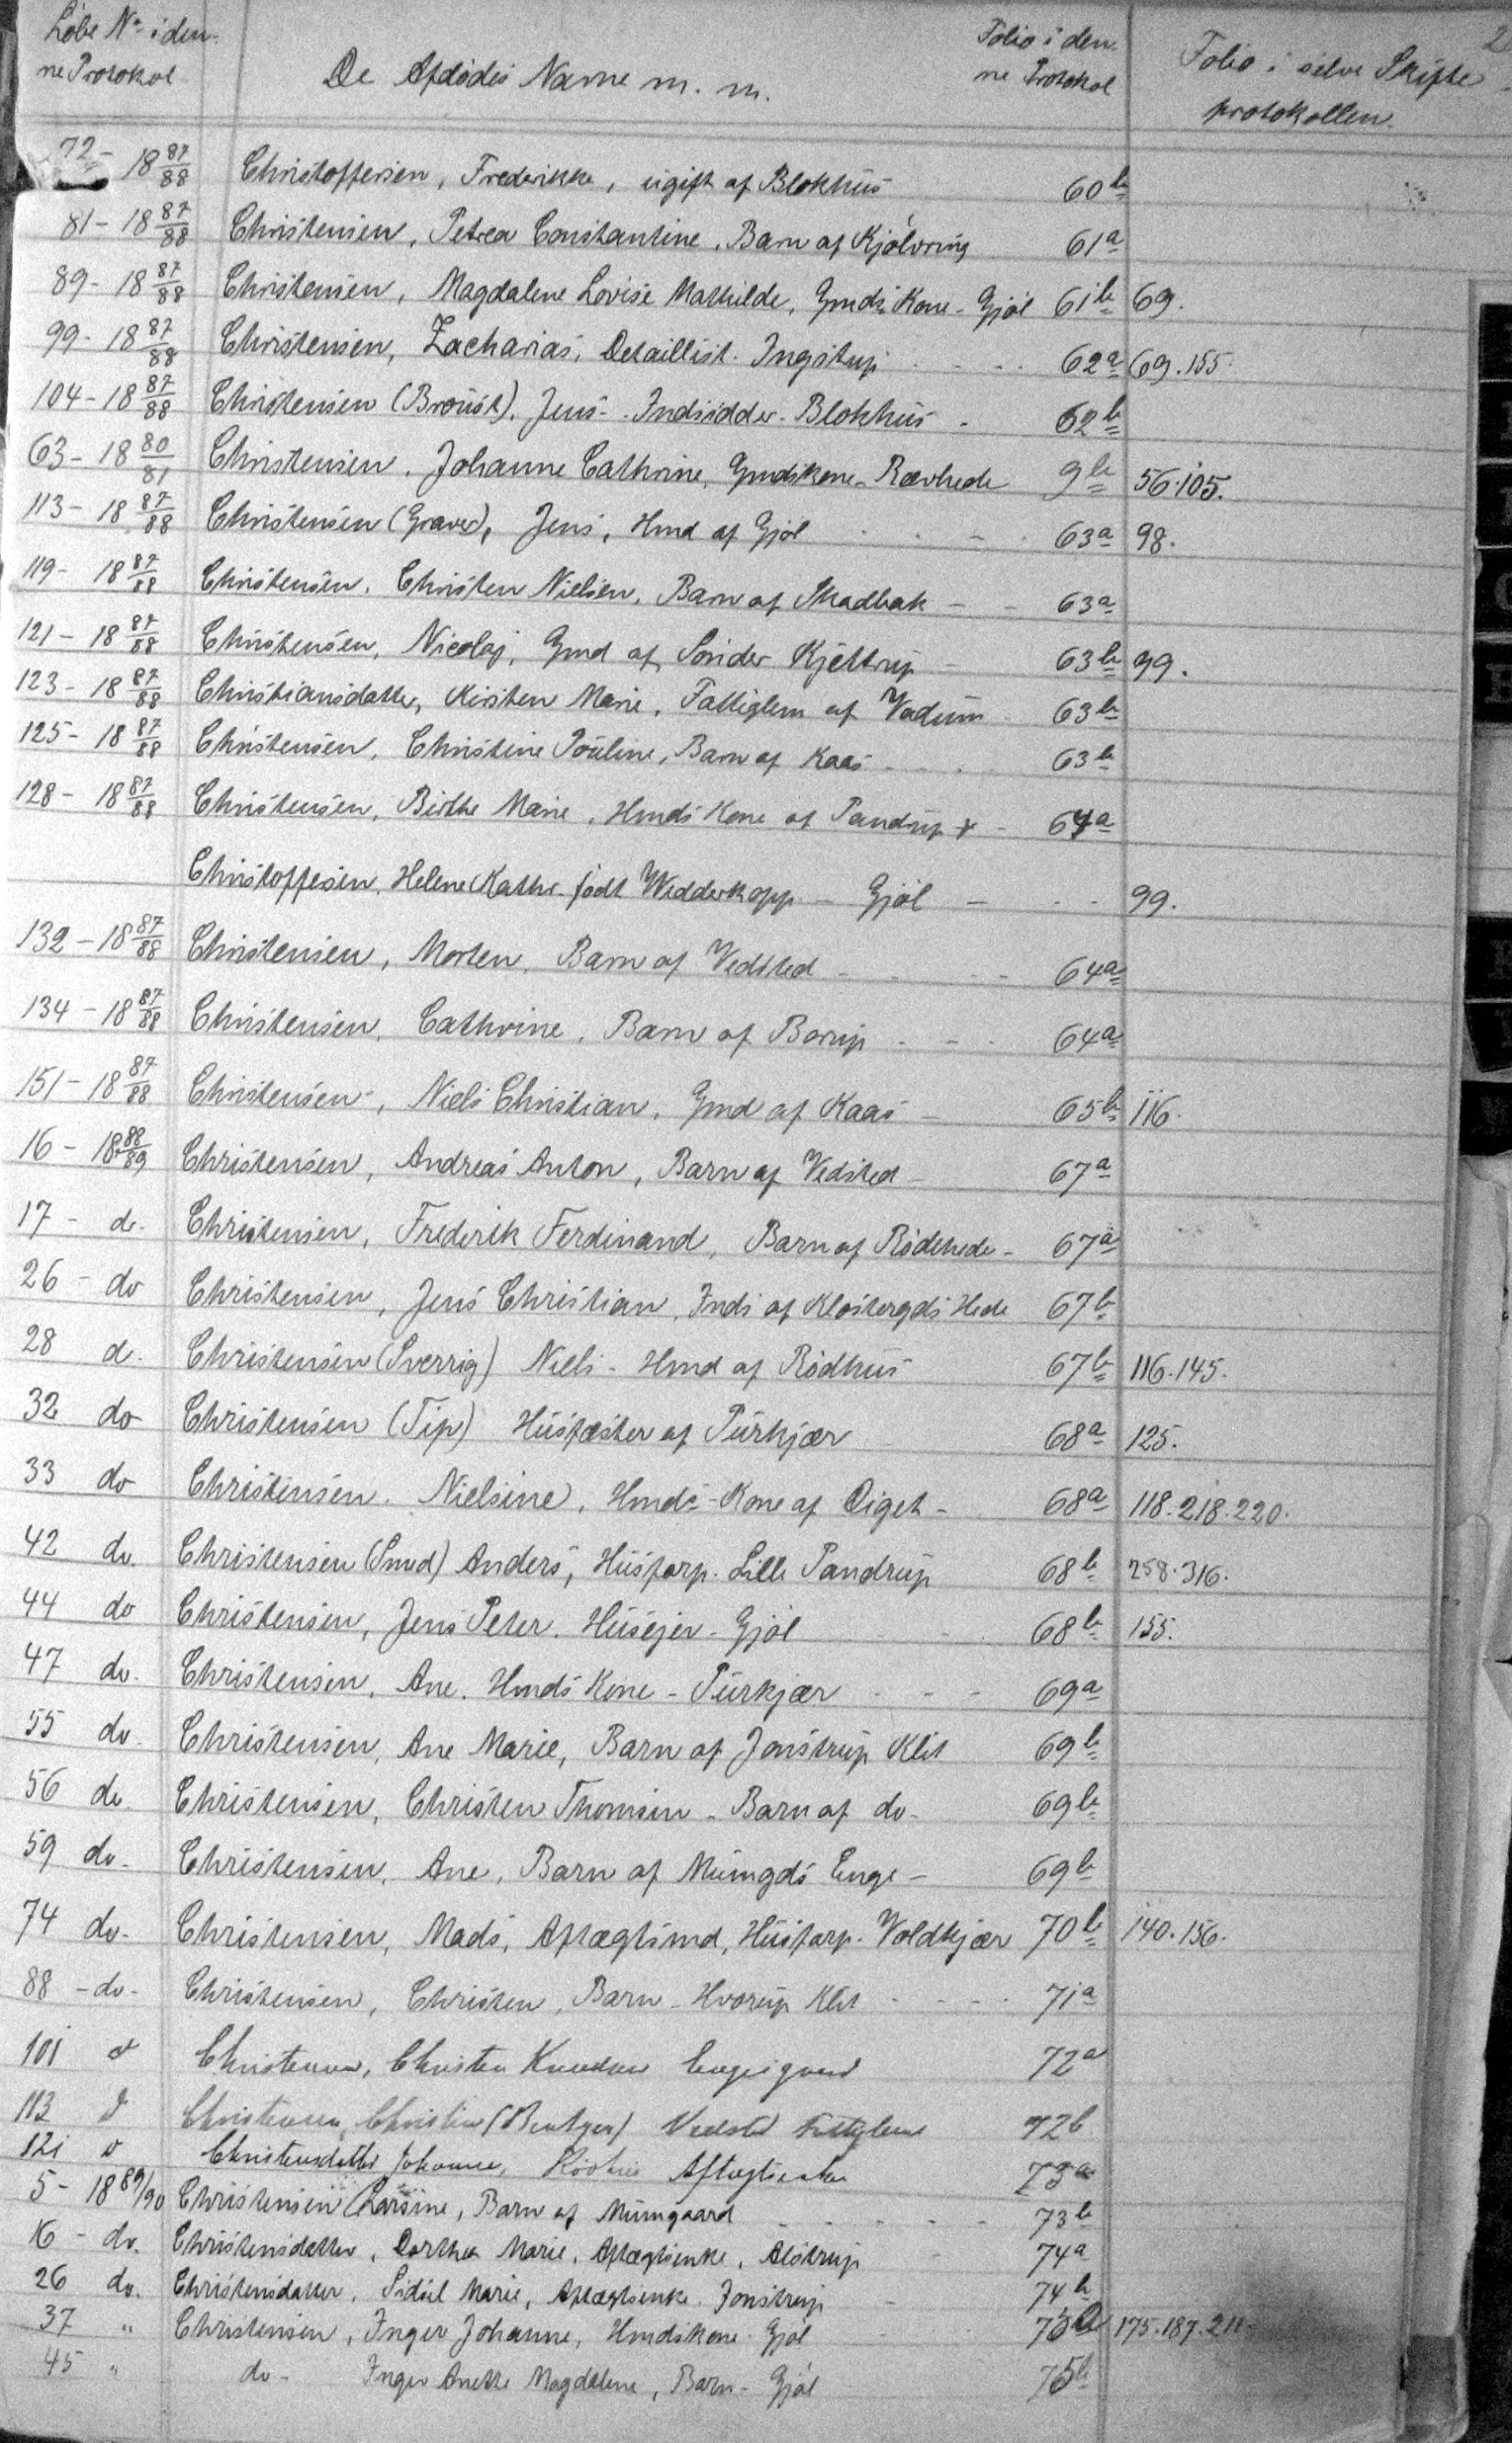 2
Løbe No i den-
ne Protokol
De Afdødes Navne m. m.
Folio i den-
ne Protokol
Folio i selve Skifte
protokollen.
72- 18 87/88 Christoffersen, Frederikke, ugift af Blokhus 60b
81- 18 87/88 Christensen, Petrea Constantine, Barn af Kjølvring 61a
89- 18 87/88 Christensen, Magdalene Lovise Mathilde, Gmds Kone - Gjøl 61b 69.
99- 18 87/88 Christensen, Zacharias, Detaillist. Ingstup 62a 69.155.
104- 18 87/88 Christensen (Broust), Jens - Indsidder - Blokhus - 62b
63- 18 80/81 Christensen, Johanne Cathrine, Gmdskone - Rævhede 9b 56.105.
113- 18 87/88 Christensen (Graver), Jens, Hmd af Gjøl 63a 98.
119- 18 87/88 Christensen, Christen Nielsen, Barn af Skadbak - - 63a
121- 18 87/88 Christensen, Nicolaj, Gmd af Sønder Kjettrup - 63b 99.
123- 18 87/88 Christiansdatter, Kirsten Marie, Fattiglem af Vadum 63b
125- 18 87/88 Christensen, Christine Pouline, Barn af Kaas 63b
128- 18 87/88 Christensen, Birthe Marie, Hmds Kone af Pandrup + - 64a
Christoffersen, Helene Kathr. født Wedderkopp - Gjøl - 99.
132- 18 87/88 Christensen, Morten, Barn af Vedsted - 64a
134- 18 87/88 Christensen, Cathrine, Barn af Borup 64a
151- 18 87/88 Christensen, Niels Christian, Gmd af Kaas - 65b 116.
16- 18 88/89 Christensen, Andreas Anton, Barn af Vedsted - 67a
17- do. Christensen, Frederik Ferdinand, Barn af Rødehede - 67a
26- do Christensen, Jens Christian, Inds af Klostergds Hede 67b
28 do. Christensen (Sverrig) Niels - Hmd af Rødhus 67b 116.145.
32 do Christensen (Tip) Husfæster af Purkjær 68a 125.
33 do Christensen, Nielsine, Hmds-Kone af Diget - 68a 118.218.220.
42 do. Christensen (Smed) Anders, Husforp. Lille Pandrup 68b 258.316.
44 do Christensen, Jens Peter, Husejer - Gjøl 68b 155.
47 do. Christensen, Ane, Hmds Kone - Purkjær 69a
55 do. Christensen, Ane Marie, Barn af Jonstrup Klit 69b
56 do. Christensen, Christen Thomsen - Barn af do - 69b
59 do. Christensen, Ane, Barn af Mumgds Enge - 69b
74 do. Christensen, Mads, Aftægtsmd, Husforp. Voldkjær 70b 140.156.
88 - do - Christensen, Christen, Barn - Hvorup Klit 71a
101 d Christensen, Christen Knudsen 72a
113 d Christensen, Christen Vedsted 72b
121 d Christensdatter Johanne, 73a
5- 18 89/90 Christensen Larsine, Barn af Mumgaard 73b
16 - do. Christensdatter, Dorthea Marie, Aftægtsenke, Alstrup 74a
26 do. Christensdatter, Sidsel Marie, Aftægtsenke. Jonstrup 74b
37 " Christensen, Inger Johanne, Hmdskone Gjøl 75a 175.187.211
45 " do - Inger Anette Magdalene, Barn - Gjøl 75b